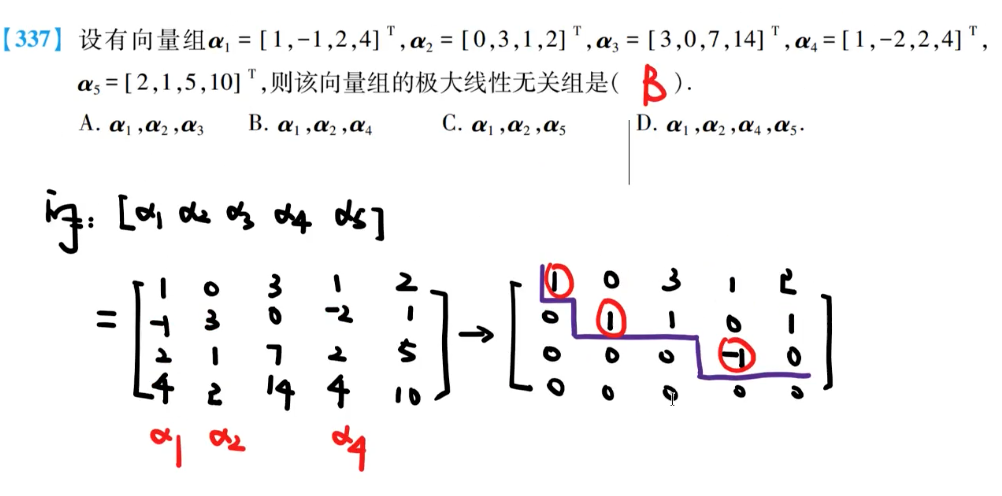 【337】 设有向量组α₁ = [1,-1,2,4]ᵀ,α₂ = [0,3,1,2]ᵀ,α₃ = [3,0,7,14]ᵀ,α₄ = [1,-2,2,4]ᵀ,
α₅ = [2,1,5,10]ᵀ,则该向量组的极大线性无关组是( B ).
A. α₁,α₂,α₃ B. α₁,α₂,α₄ C. α₁,α₂,α₅ D. α₁,α₂,α₄,α₅.
[α₁ α₂ α₃ α₄ α₅]
1 0 3 1 2 1 0 3 1 2
= -1 3 0 -2 1 → 0 1 1 0 1
2 1 7 2 5 0 0 0 -1 0
4 2 14 4 10 0 0 0 0 0
α₁ α₂ α₄